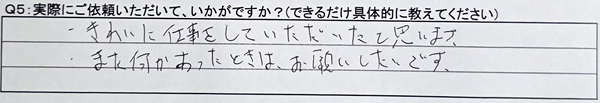 Q5:実際にご依頼いただいて、いかがですか?(できるだけ具体的に教えてください)
・きれいに仕事をしていただいたと思います。
・また何かあったときは、お願いしたいです。